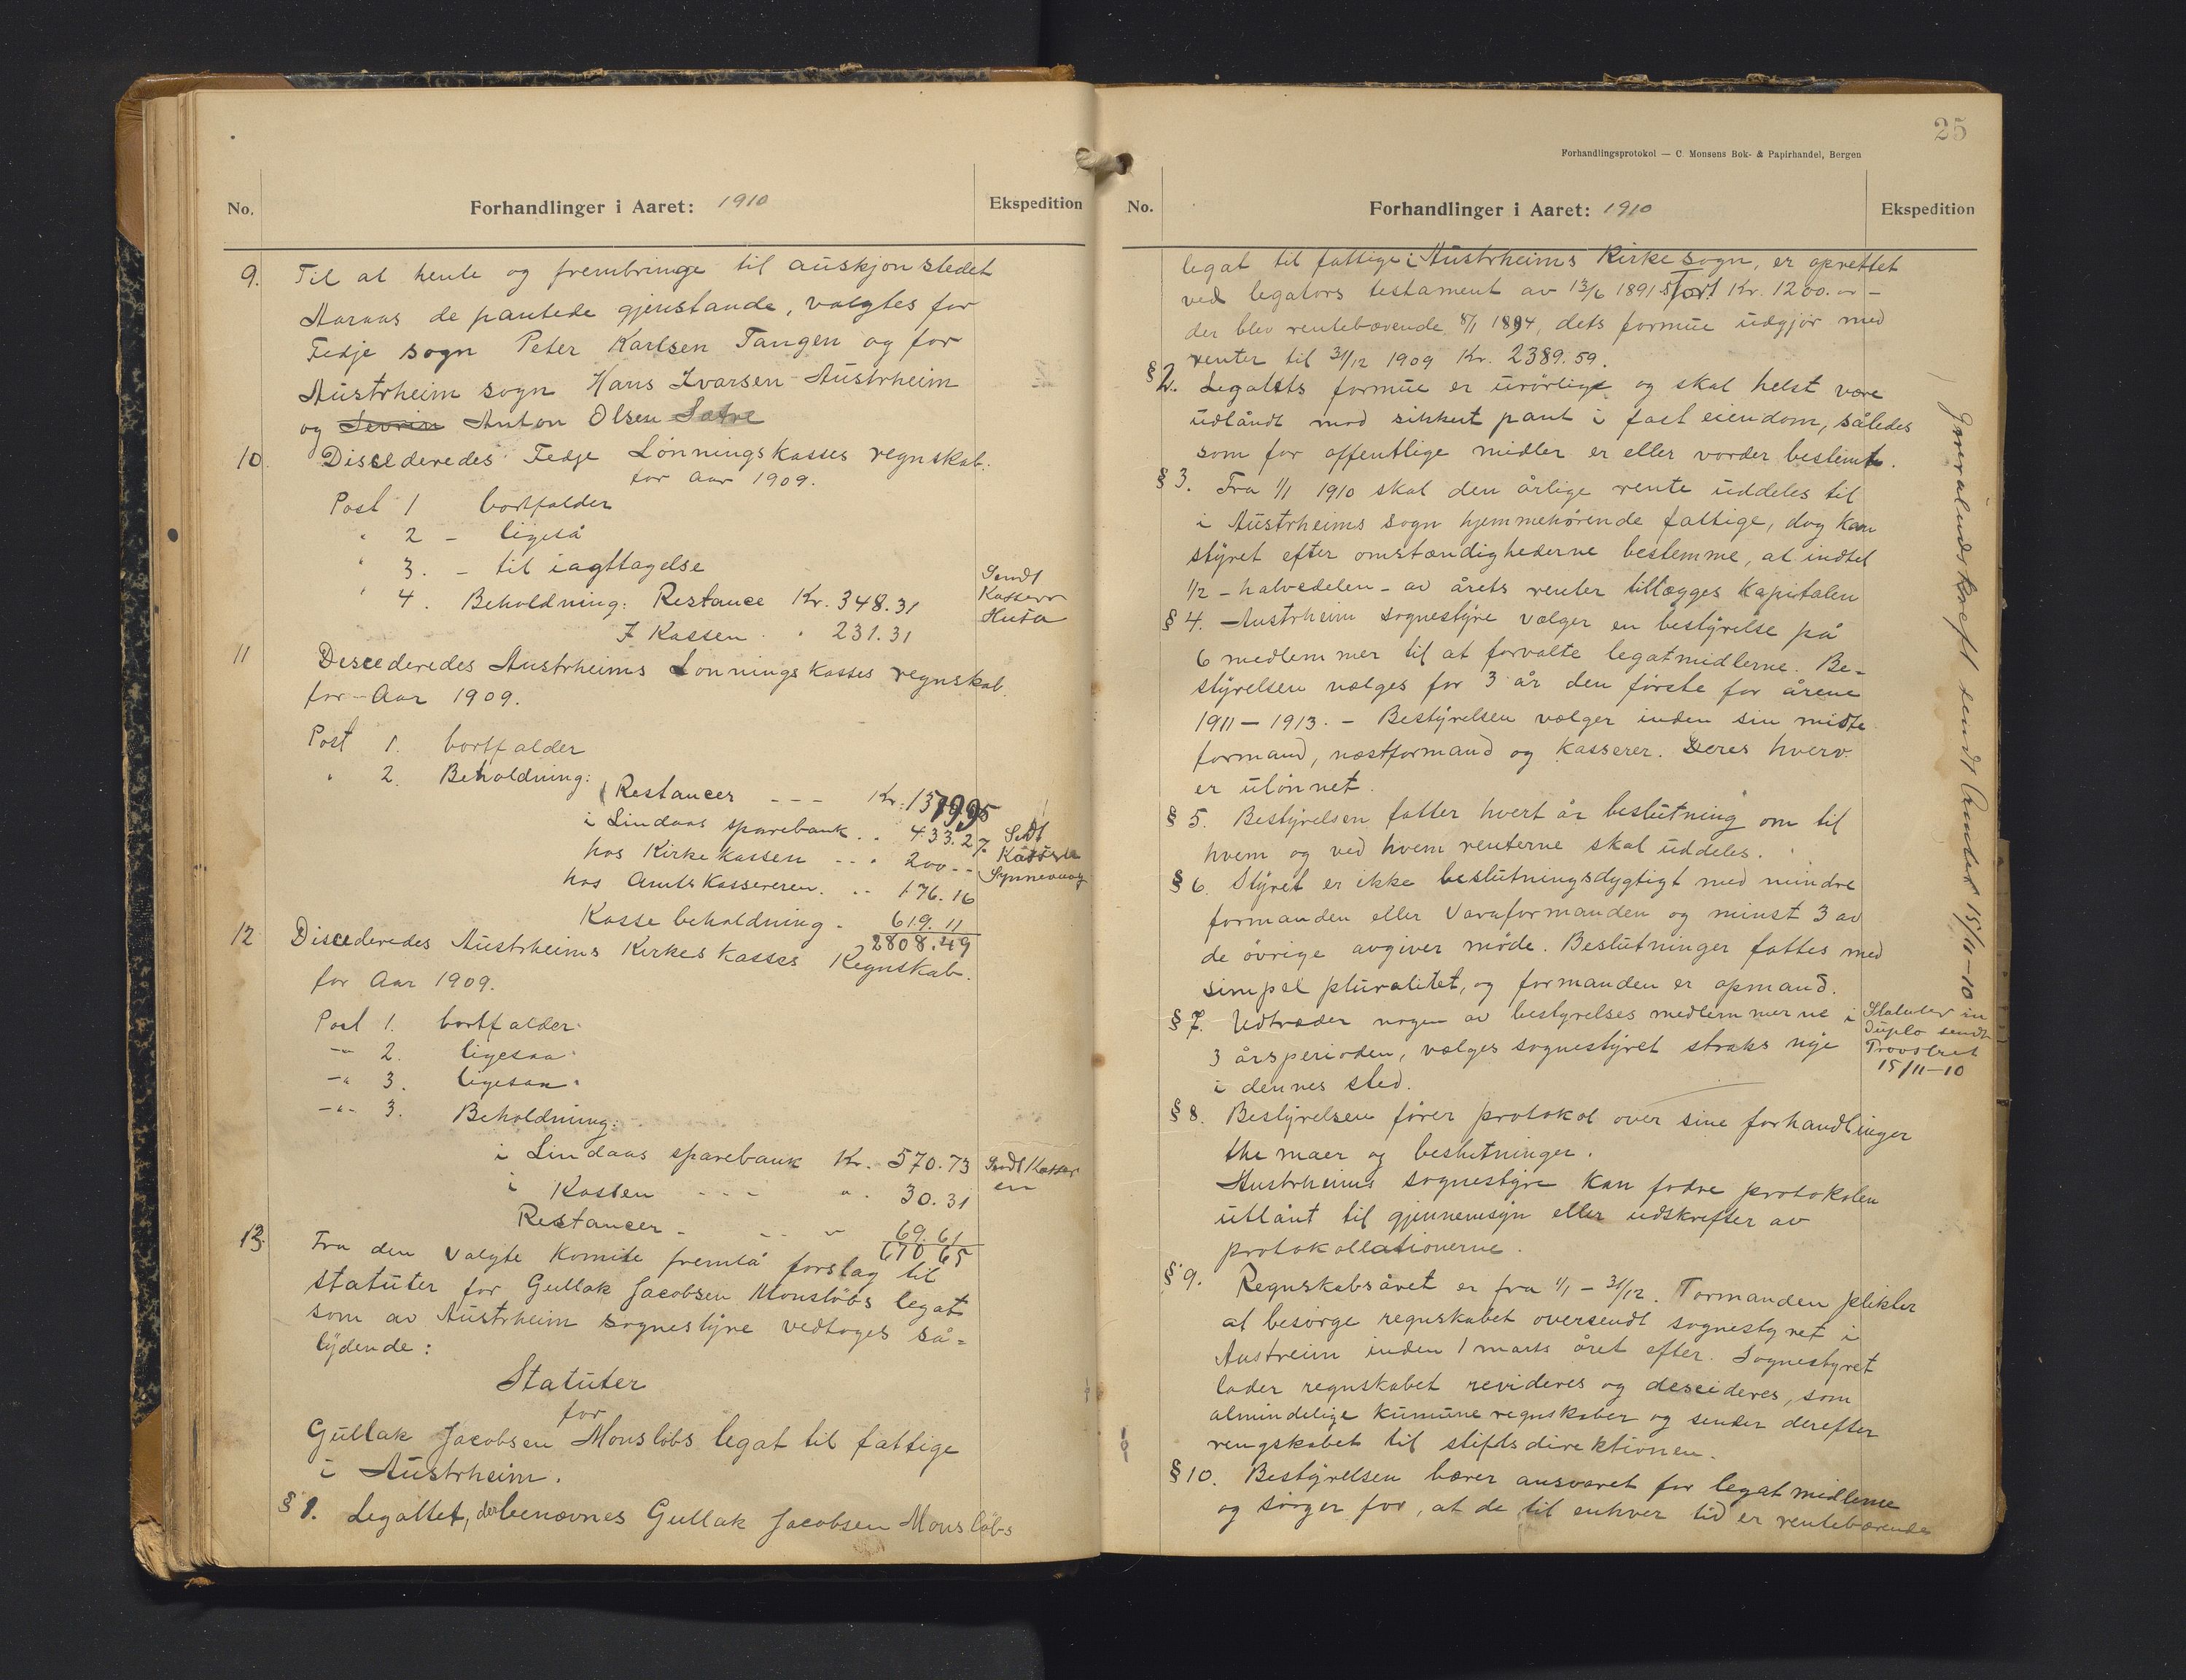 No.
Forhandlinger i Aaret: 1910
Ekspedition
9. Til at hente og frembringe til auskjonstedet
Aaraas de pantede gjenstande, valgtes for
Fedje sogn Peter Karlsen Tangen og for
Austrheim sogn Hans Ivarsen Austrheim
og Sevrin Anton Olsen Sætre
10. Discederedes Fedje Lønningskasses regnskab.
for aar 1909.
Post 1 bortfalder
" 2 - ligeså
" 3. - til iagttagelse
" 4. Beholdning: Restance Kr. 348.31
I Kassen " 231.31
Sendt
Kasserer
Husa
11 Descederedes Austrheims Lønningskasses regnskab.
for Aar 1909.
Post 1. bortfalder
" 2. Beholdning:
Restancer - - - Kr. 1379.95
i Lindaas sparebank . . 433.27.
hos Kirkekassen - - " 200 - -
hos Amtskassereren. . - 176.16
Kasse beholdning - 619.11
2808.49
Sendt
Kassere
Synnevaag
12 Discederedes Austrheims Kirkeskasses Regnskab.
for Aar 1909.
Post 1. bortfalder.
-"- 2. ligesaa.
-"- 3. ligesaa.
-"- 3. Beholdning:
i Lindaas sparebank Kr. 570.73
i Kassen - - - " 30.31
Restancer - - - " 69.61
670 65
Sendt Kasser
en
13. Fra den valgte Komite fremlå forslag til
statuter for Gullak Jacobsen Monsløbs legat
som av Austrheim sognestyre vedtoges så=
lydende:
Statuter
for
Gullak Jacobsen Monsløbs legat til fattige
i Austrheim.
§ 1. Legattet, der benævnes Gullak Jacobsen Monsløbs
25
Forhandlingsprotokol — C. Monsens Bok- & Papirhandel, Bergen
No.
Forhandlinger i Aaret: 1910
Ekspedition
legat til fattige i Austrheims Kirkesogn, er oprettet
ved legators testament av 13/6 1891 stort Kr. 1200.00 -
der blev rentebærende 8/1 1894, dets formue udgjør med
renter til 31/12 1909 Kr. 2389.59.
§ 2. Legatets formue er urørlige og skal helst være
udlåndt mod sikkert pant i fast eiendom, således
som for offentlige midler er eller vorder bestemt.
§ 3. Fra 1/1 1910 skal den årlige rente uddeles til
i Austrheims sogn hjemmehørende fattige, dog kan
styret efter omstændighederne bestemme, at indtil
1/2 - halvedelen - av årets renter tillægges Kapitalen
§ 4. Austrheim sognestyre vælger en bestyrelse på
6 medlemmer til at forvalte legatmidlerne. Be=
styrelsen vælges for 3 år den første for årene
1911 - 1913. - Bestyrelsen vælger inden sin midte
formand, næstformand og Kasserer. Deres hverv
er ulønnet.
§ 5. Bestyrelsen fatter hvert år beslutning om til
hvem og ved hvem renterne skal uddeles.
§ 6. Styret er ikke beslutningsdygtigt med mindre
formanden eller Varaformanden og minst 3 av
de øvrige avgiver møde. Beslutninger fattes med
simpel pluralitet, og formanden er opmand.
§ 7. Udtræder nogen av bestyrelses medlemmerne i
3 årsperioden, vælges sognestyret straks nye
i dennes sted.
Statuter in
duplo sendt
Provstiet
15/11-10
§ 8. Bestyrelsen fører protokol over sine forhandlinger
themaer og beslutninger.
Austrheims sognestyre kan fodre protokolen
utlånt til gjennemsyn eller udskrefter av
protokollationerne.
§ 9. Regnskabsåret er fra 1/1 - 31/12. Formanden plikter
at besørge regnskabet oversendt sognestyret i
Austreim inden 1 marts året efter. Sognestyret
lader regnskabet revideres og descideres, som
almindelige kumune regnskaber og sender derefter
rengskabet til stiftsdirektionen.
§ 10. Bestyrelsen bærer ansvaret for legatmidlerne
og sørger for, at de til enhver tid er rentebærende
Gjeneraludskreft sendt Amtet 15/11-10